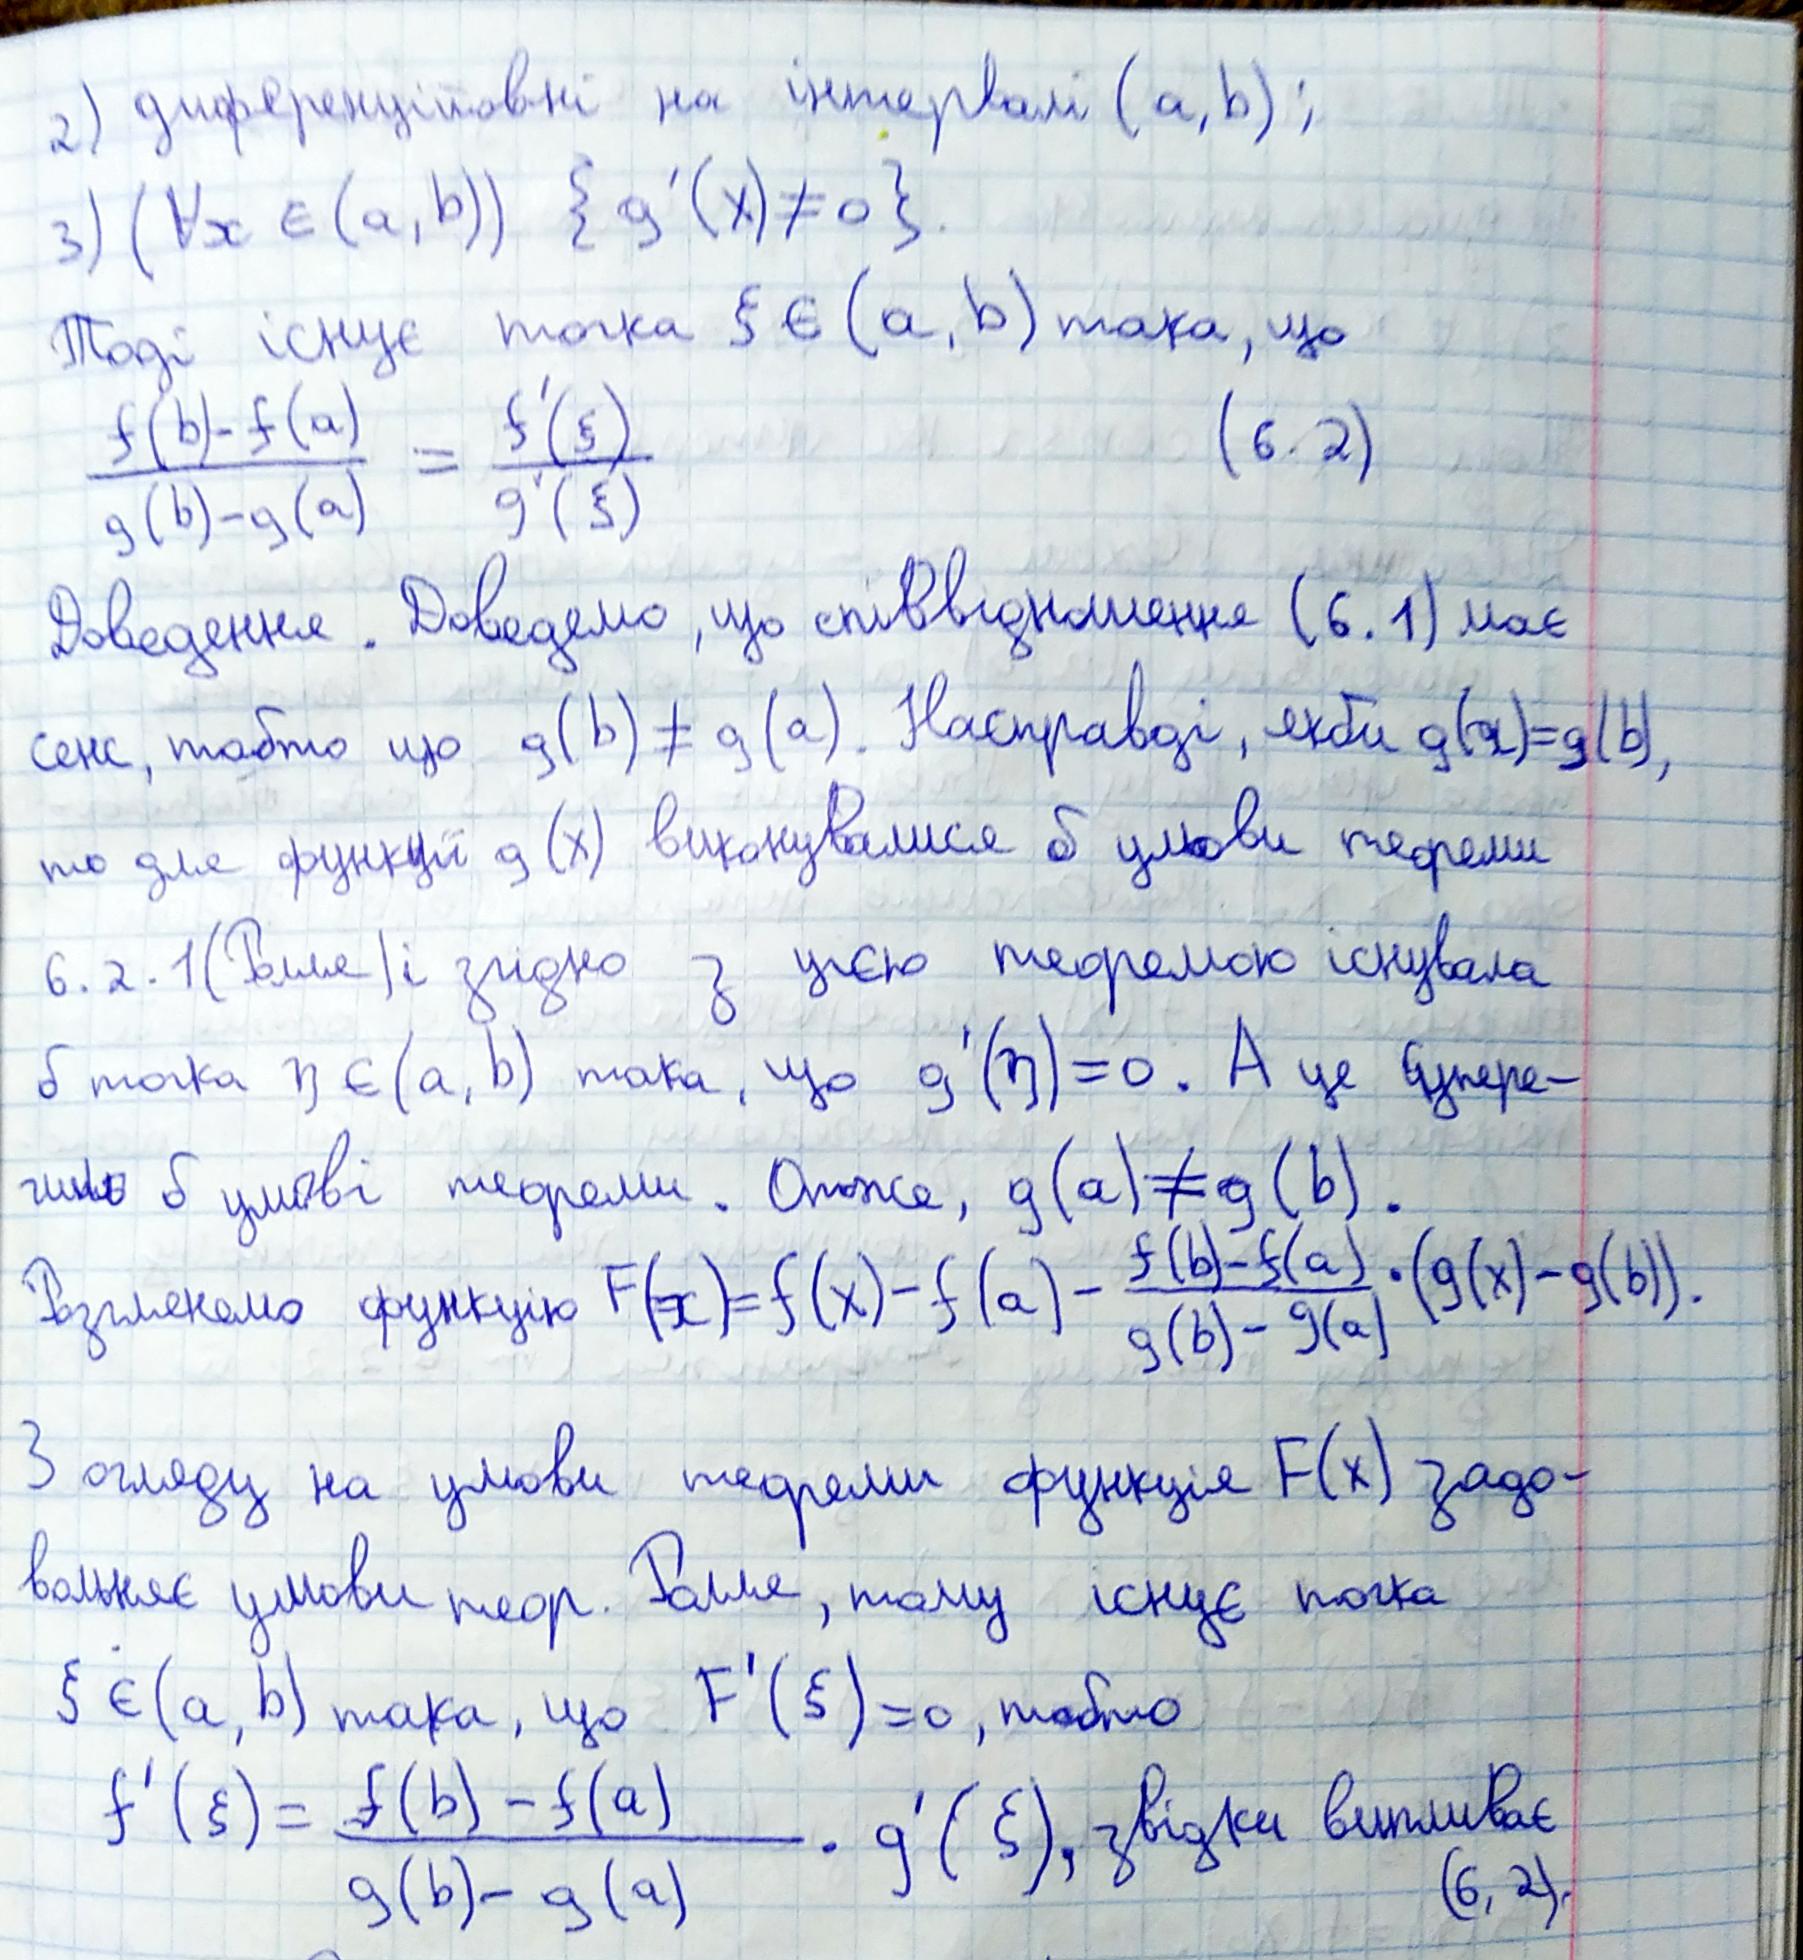 2) диференційовні на інтервалі (a,b);
3) (∀x ∈ (a,b)) {g'(x)≠0}.
Тоді існує точка ξ ∈ (a,b) така, що
f(b)-f(a) / g(b)-g(a) = f'(ξ) / g'(ξ) (6.2)
Доведення. Доведемо, що співвідношення (6.1) має
сенс, тобто що g(b)≠g(a). Насправді, якби g(a)=g(b),
то для функції g(x) виконувалися б умови теореми
6.2.1(Ролля) і згідно з цією теоремою існувала
б точка η ∈ (a,b) така, що g'(η)=0. А це супере-
чило б умові теореми. Отже, g(a)≠g(b).
Розглянемо функцію F(x)=f(x)-f(a)- f(b)-f(a) / g(b)-g(a) ·(g(x)-g(b)).
З огляду на умови теореми функція F(x) задо-
вольняє умови теор. Ролля, тому існує точка
ξ ∈ (a,b) така, що F'(ξ)=0, тобто
f'(ξ)= f(b)-f(a) / g(b)-g(a) · g'(ξ), звідки випливає
(6,2).